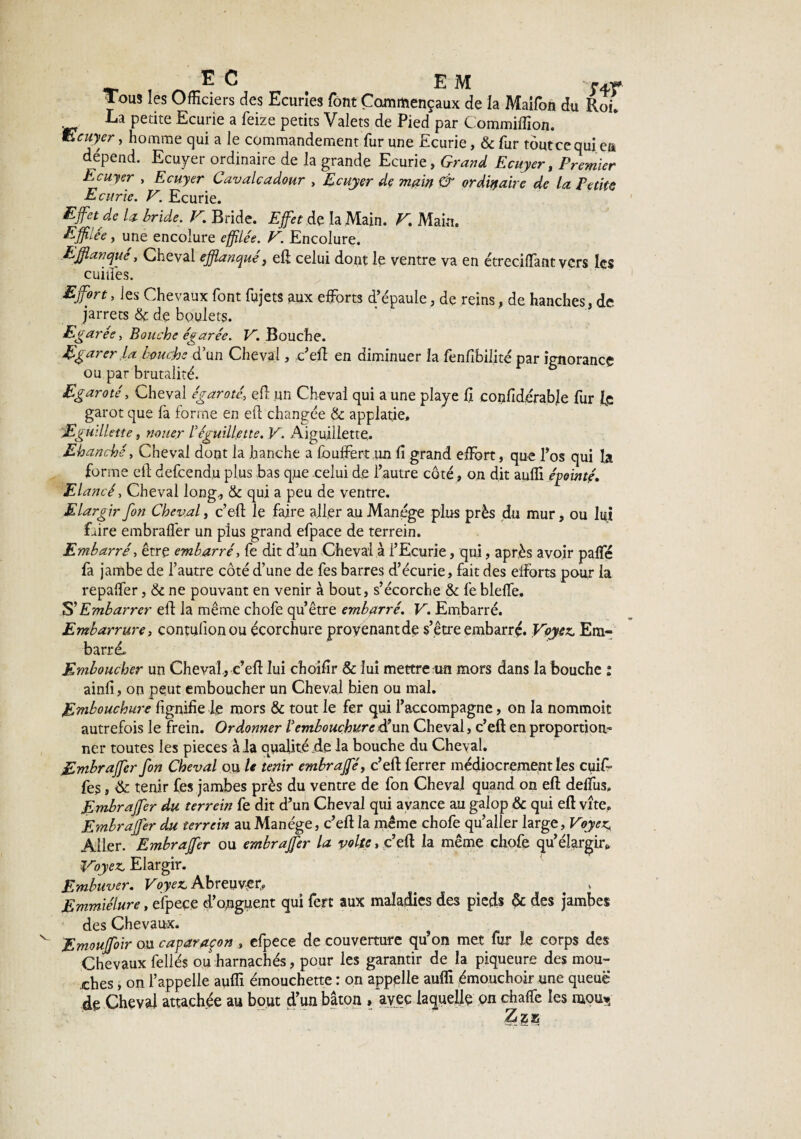 E C E M 545
Tous les Officiers des Ecuries ſont Commençaux de la Maiſon du Roi.
La petite Ecurie a ſeize petits Valets de Pied par Commiſſion.
Ecuyer, homme qui a le commandement ſur une Ecurie, & ſur tout ce qui en
dépend. Ecuyer ordinaire de la grande Ecurie, Grand Ecuyer, Premier
Ecuyer, Ecuyer Cavalcadour, Ecuyer de main & ordinaire de la Petite
Ecurie. V. Ecurie.
Effet de la bride. V. Bride. Effet de la Main. V. Main.
Effilée, une encolure effilée. V. Encolure.
Efflanqué, Cheval efflanqué, eſt celui dont le ventre va en étreciſſant vers les
cuiſſes.
Effort, les Chevaux ſont ſujets aux efforts d'épaule, de reins, de hanches, de
jarrets & de boulets.
Egarée, Bouche égarée. V. Bouche.
Egarer la bouche d'un Cheval, c'eſt en diminuer la ſenſibilité par ignorance
ou par brutalité.
Egaroté, Cheval égaroté, eſt un Cheval qui a une playe ſi conſidérable ſur le
garot que ſa forme en eſt changée & applatie.
Eguillette, nouer l'éguillette. V. Aiguillette.
Ehanché, Cheval dont la hanche a ſouffert un ſi grand effort, que l'os qui la
forme eſt deſcendu plus bas que celui de l'autre côté, on dit auſſi épointé.
Elancé, Cheval long, & qui a peu de ventre.
Elargir ſon Cheval, c'eſt le faire aller au Manége plus près du mur, ou lui
faire embraſſer un plus grand eſpace de terrein.
Embarré, être embarré, ſe dit d'un Cheval à l'Ecurie, qui, après avoir paſſé
ſa jambe de l'autre côté d'une de ſes barres d'écurie, fait des efforts pour la
repaſſer, & ne pouvant en venir à bout, s'écorche & ſe bleſſe.
S'Embarrer eſt la même choſe qu'être embarré. V. Embarré.
Embarrure, contuſion ou écorchure provenant de s'être embarré. Voyez Em-
barré.
Emboucher un Cheval, c'eſt lui choiſir & lui mettre un mors dans la bouche :
ainſi, on peut emboucher un Cheval bien ou mal.
Embouchure ſignifie le mors & tout le fer qui l'accompagne, on la nommoit
autrefois le frein. Ordonner l'embouchure d'un Cheval, c'eſt en proportion-
ner toutes les pieces à la qualité de la bouche du Cheval.
Embraſſer ſon Cheval ou le tenir embraſſé, c'eſt ſerrer médiocrement les cuiſ-
ſes, & tenir ſes jambes près du ventre de ſon Cheval quand on eſt deſſus.
Embraſſer du terrein ſe dit d'un Cheval qui avance au galop & qui eſt vîte.
Embraſſer du terrein au Manége, c'eſt la même choſe qu'aller large, Voyez
Aller. Embraſſer ou embraſſer la volte, c'eſt la même choſe qu'élargir.
Voyez Elargir.
Embuver. Voyez Abreuver.
Emmiélure, eſpece d'onguent qui ſert aux maladies des pieds & des jambes
des Chevaux.
Emouſſoir ou caparaçon, eſpece de couverture qu'on met ſur le corps des
Chevaux ſellés ou harnachés, pour les garantir de la piqueure des mou-
ches, on l'appelle auſſi émouchette : on appelle auſſi émouchoir une queuë
de Cheval attachée au bout d'un bâton, avec laquelle on chaſſe les mou-
Zzz